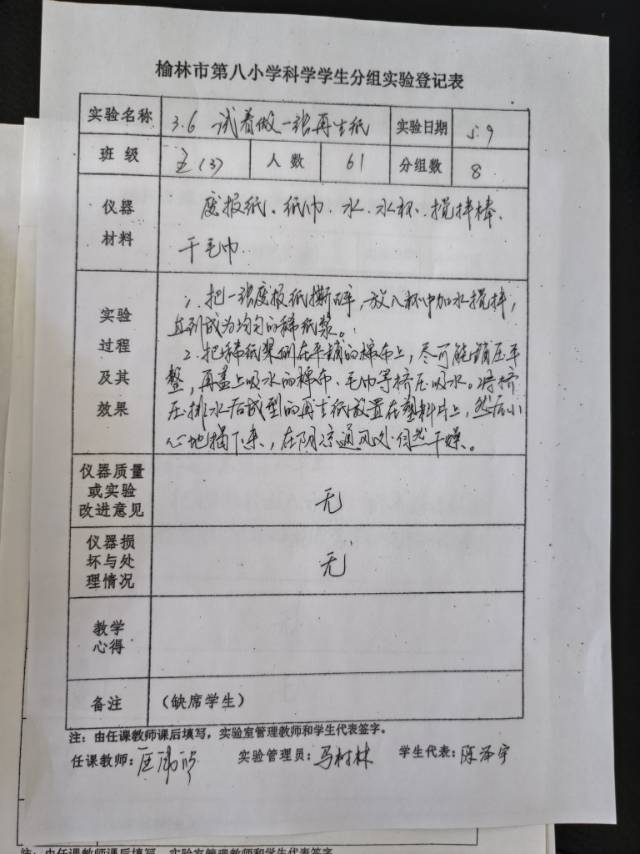 榆林市第八小学科学学生分组实验登记表
实验名称 3.6 试着做一张再生纸 实验日期 5.9
班 级 五(3) 人 数 61 分组数 8
仪器材料 废报纸、纸巾、水、水杯、搅拌棒、
干毛巾
实验过程及其效果 1、把一张废报纸撕碎，放入杯中加水搅拌，
直到成为均匀的稀纸浆。
2、把稀纸浆倒在平铺的棉布上，尽可能铺压平
整，再盖上吸水的棉布、毛巾等挤压吸水。将挤
压排水后成型的再生纸放置在塑料片上，然后小
心地揭下来，在阴凉通风处自然干燥。
仪器质量或实验改进意见 无
仪器损坏与处理情况 无
教学心得
备注 （缺席学生）
注：由任课教师课后填写，实验室管理教师和学生代表签字。
任课教师： 实验管理员：马树林 学生代表：陈泽宇
注：由任课教师课后填写，实验室管理教师和学生代表签字